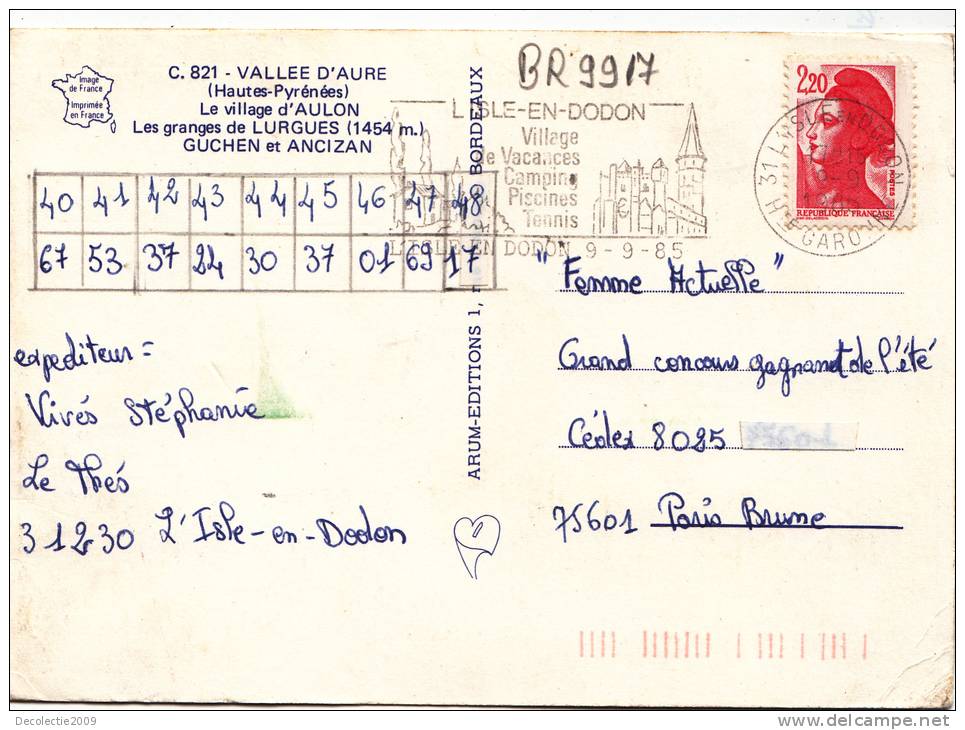 BR 9917
Image
de France
Imprimée
en France
C. 821 - VALLEE D'AURE
(Hautes-Pyrénées)
Le village d'AULON
Les granges de LURGUES (1454 m.)
GUCHEN et ANCIZAN
40 41 42 43 44 45 46 47 48
67 53 37 24 30 37 01 69 17
expediteur =
Vivés Stéphanie
Le Thés
31230 L'Isle-en-Dodon
ARUM-EDITIONS 1,
BORDEAUX
L'ISLE-EN-DODON
Village
de Vacances
Camping
Piscines
Tennis
L'ISLE-EN DODON 9-9-85
2,20
POSTES
REPUBLIQUE FRANÇAISE
31 L'ISLE-EN-DODON
HTE GARONNE
"Femme Actuelle"
Grand concours gagnant de l'été
Cédex 8025
75601 Paris Brune
Decolectie2009
www.delcampe.net